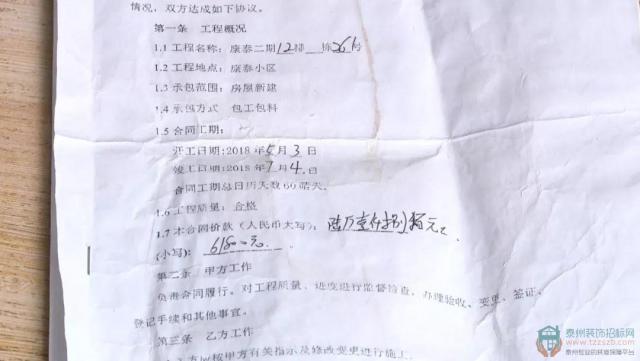 情况，双方达成如下协议。
第一条 工程概况
1.1 工程名称：康泰二期12幢 栋261号
1.2 工程地点：康泰小区
1.3 承包范围：房屋新建
1.4 承包方式 包工包料
1.5 合同工期：
开工日期：2018 年5月3日
竣工日期：2018 年7月4日
合同工期总日历天数 60 晴天。
1.6 工程质量：合格
1.7 本合同价款（人民币大写）：陆万壹仟捌佰元
(小写)：61800元.
第二条 甲方工作
负责合同履行。对工程质量、进度进行监督检查，办理验收、变更、签证、
登记手续和其他事宜。
第三条 乙方工作
按甲方有关指示及修改变更进行施工
泰州装饰招标网
www.tzzszb.com